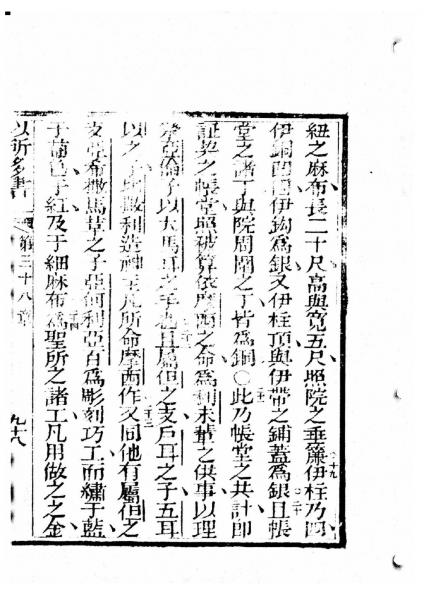 紐之麻布長二十尺高與寬五尺照院之垂簾伊柱乃四
十九
伊銅凹四伊鈎為銀又伊柱頂與伊帶之鋪蓋為銀且帳
二十
堂之諸丁與院周圍之丁皆為銅○此乃帳堂之共計即
証契之帳堂照被算依摩西之命為利未輩之供事以理
亞倫子以大馬耳之手也且屬但之支戶耳之子五耳
以之子撒利造神主凡所命摩西作又同他有屬但之
支亞希撒馬革之子亞何利亞百為彫刻巧工而繡于藍
于葡色于紅及于細麻布為聖所之諸工凡用做之之金
以所多書 第三十八章 九十八